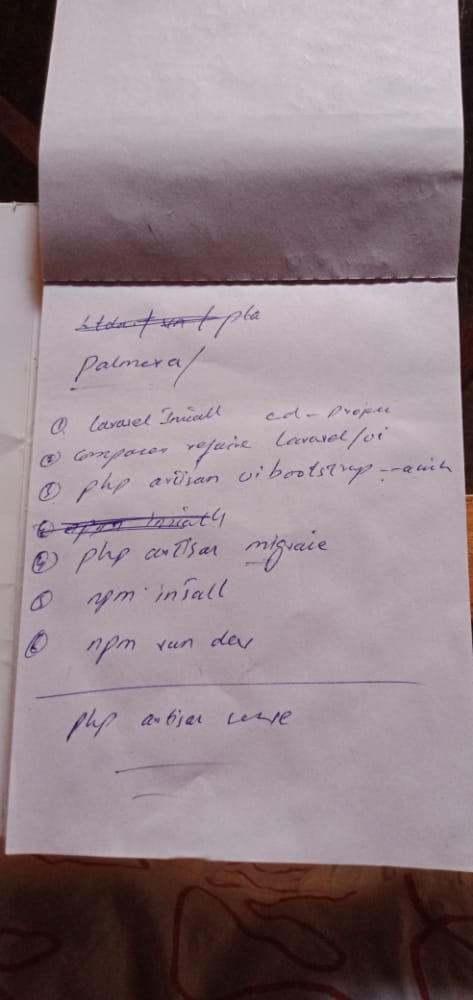 Palmera/
① laravel Install cd - Projec
② composer require laravel/ui
③ php artisan ui bootstrap --auth
④ php artisan migrate
⑤ npm install
⑥ npm run dev
php artisan serve